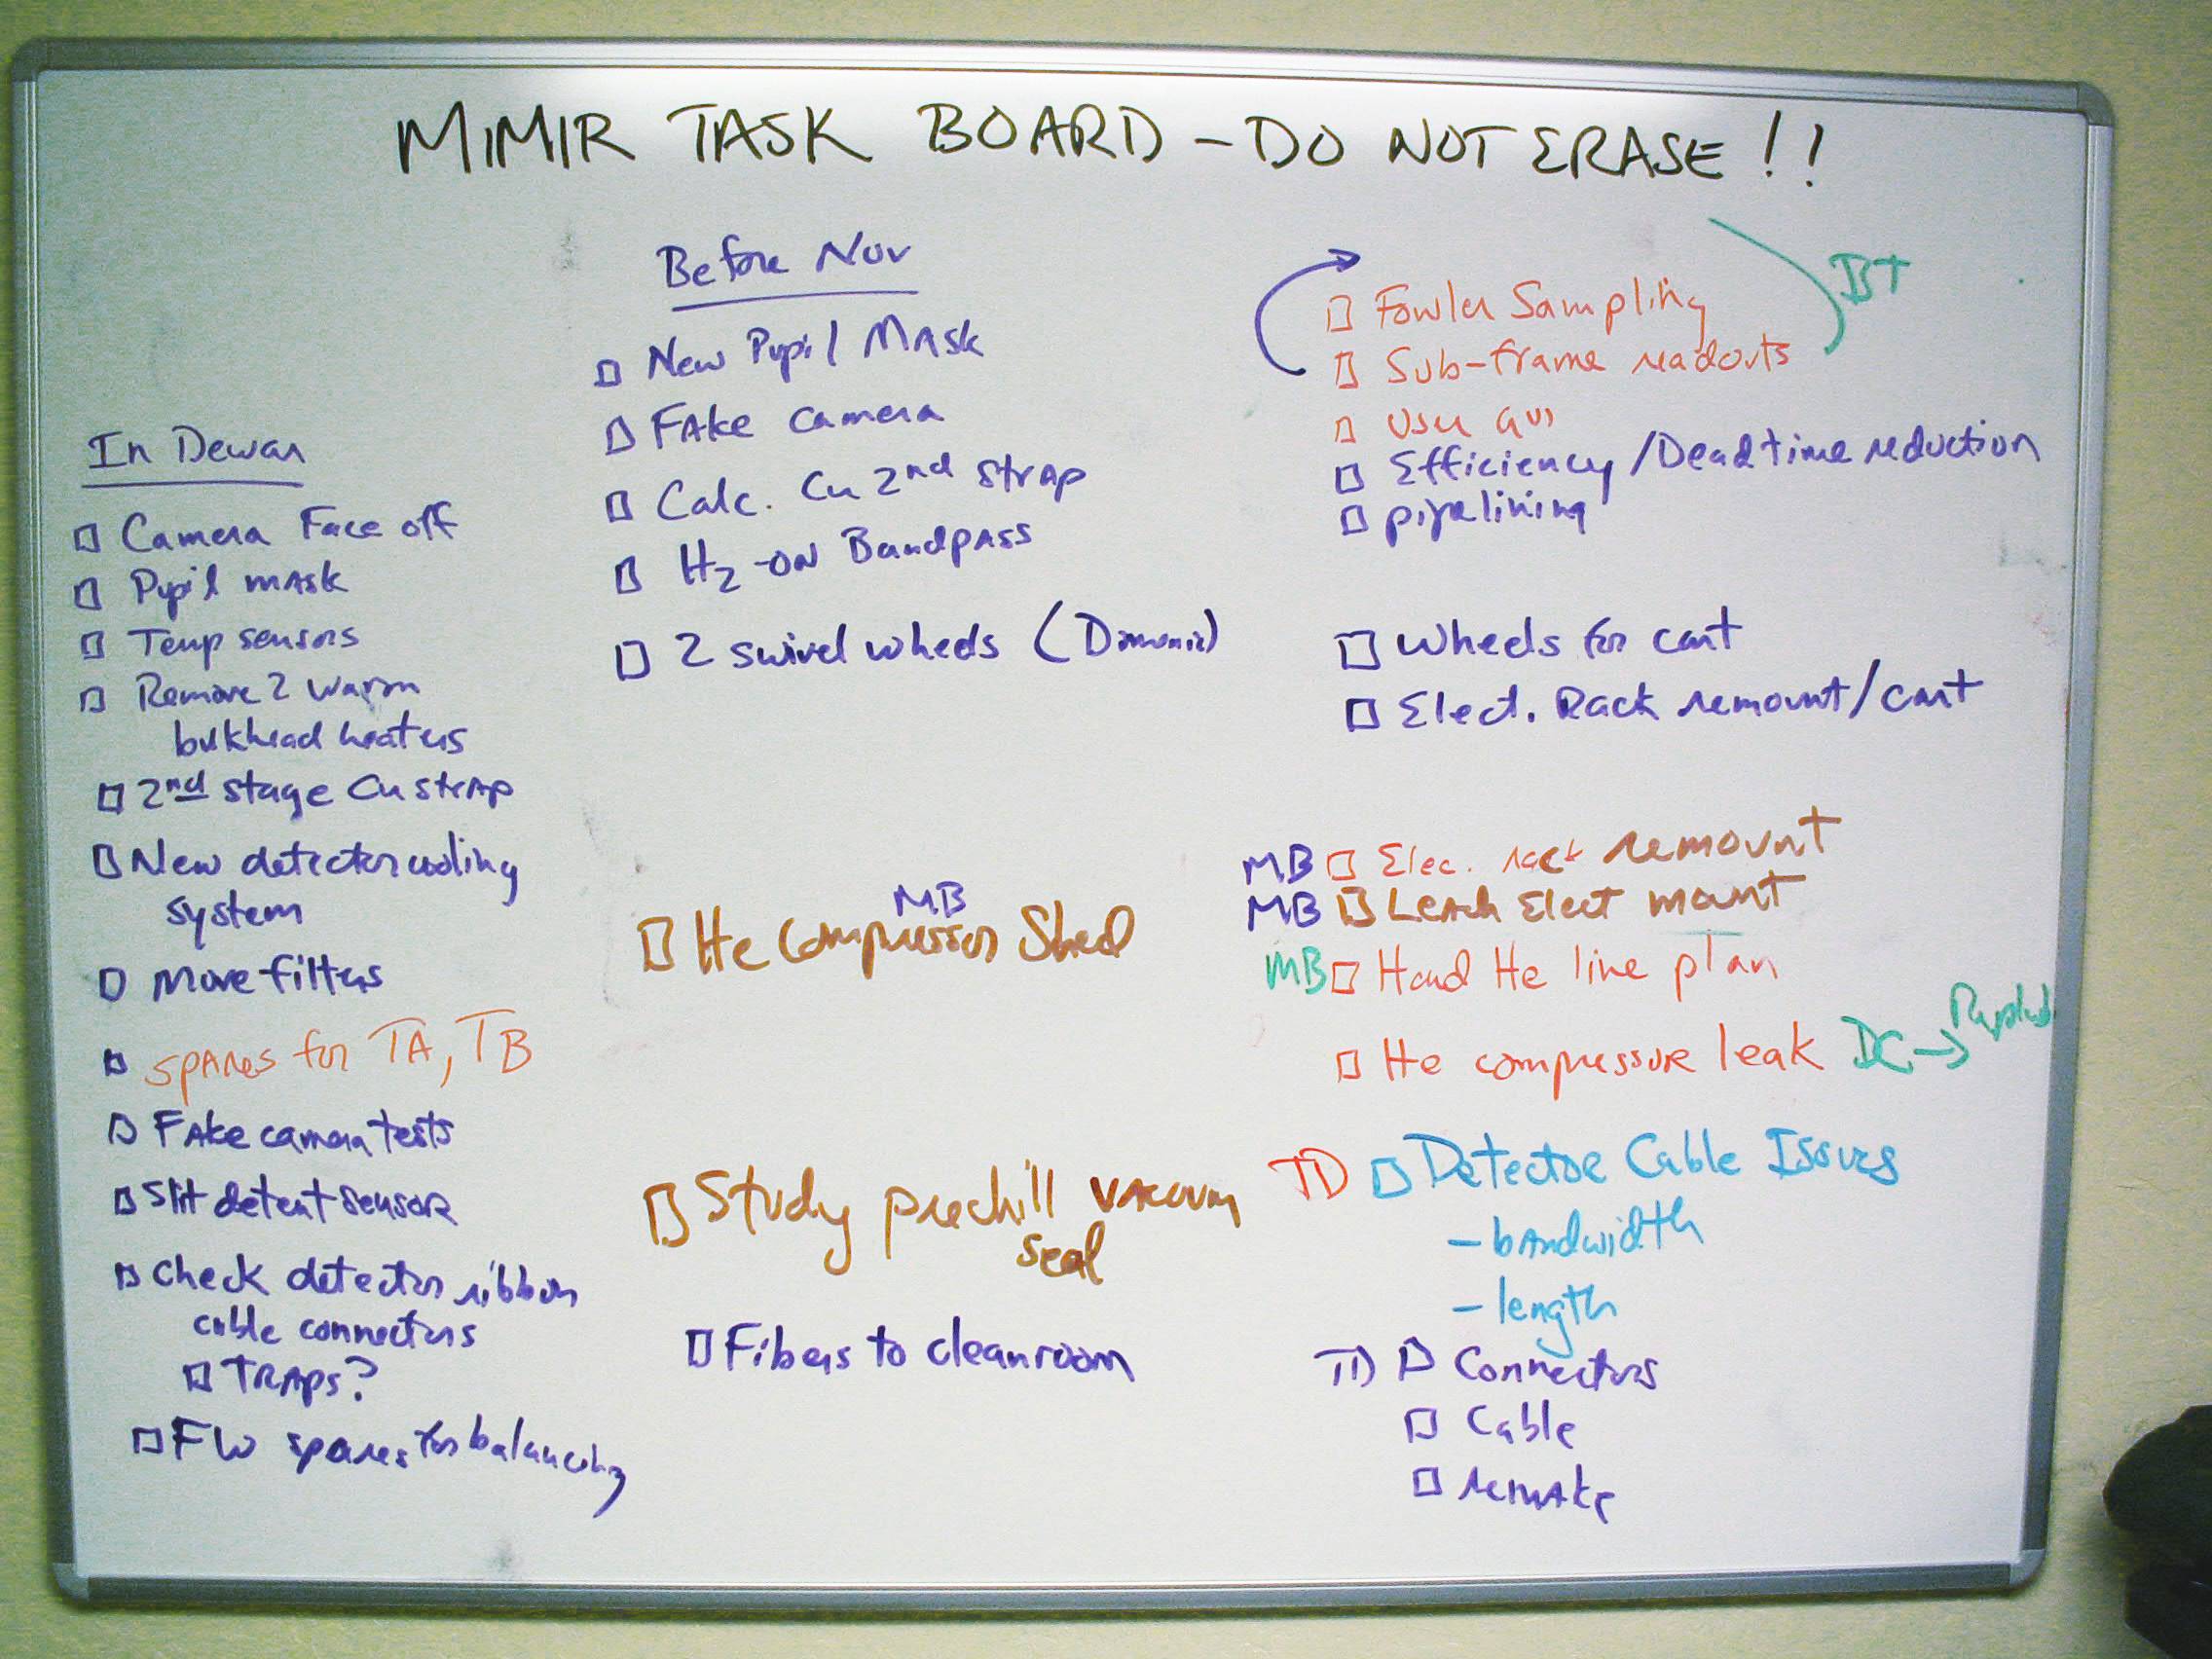 MIMIR TASK BOARD - DO NOT ERASE!!
In Dewar
□ Camera Face off
□ Pupil mask
□ Temp sensors
□ Remove 2 warm
bulkhead heaters
□ 2nd stage Cu strap
□ New detector cooling
system
□ More filters
□ spares for TA, TB
□ Fake camera tests
□ Slit detent sensor
□ Check detector ribbon
cable connectors
□ TRAPS?
□ FW spares for balancing
Before Nov
□ New Pupil Mask
□ Fake camera
□ Calc. Cu 2nd strap
□ H2-ON Bandpass
□ 2 swivel wheels
MB
□ He Compressor Shed
□ Study prechill vacuum
seal
□ Fibers to cleanroom
BT
□ Fowler Sampling
□ Sub-frame readouts
□ User GUI
□ Efficiency/Deadtime reduction
□ pipelining
□ Wheels for cart
□ Elect. Rack remount/cart
MB □ Elec. rack remount
MB □ Leach Elect mount
MB □ Hard He line plan
□ He compressor leak DC →
TD □ Detector Cable Issues
- bandwidth
- length
TD □ Connectors
□ Cable
□ remake